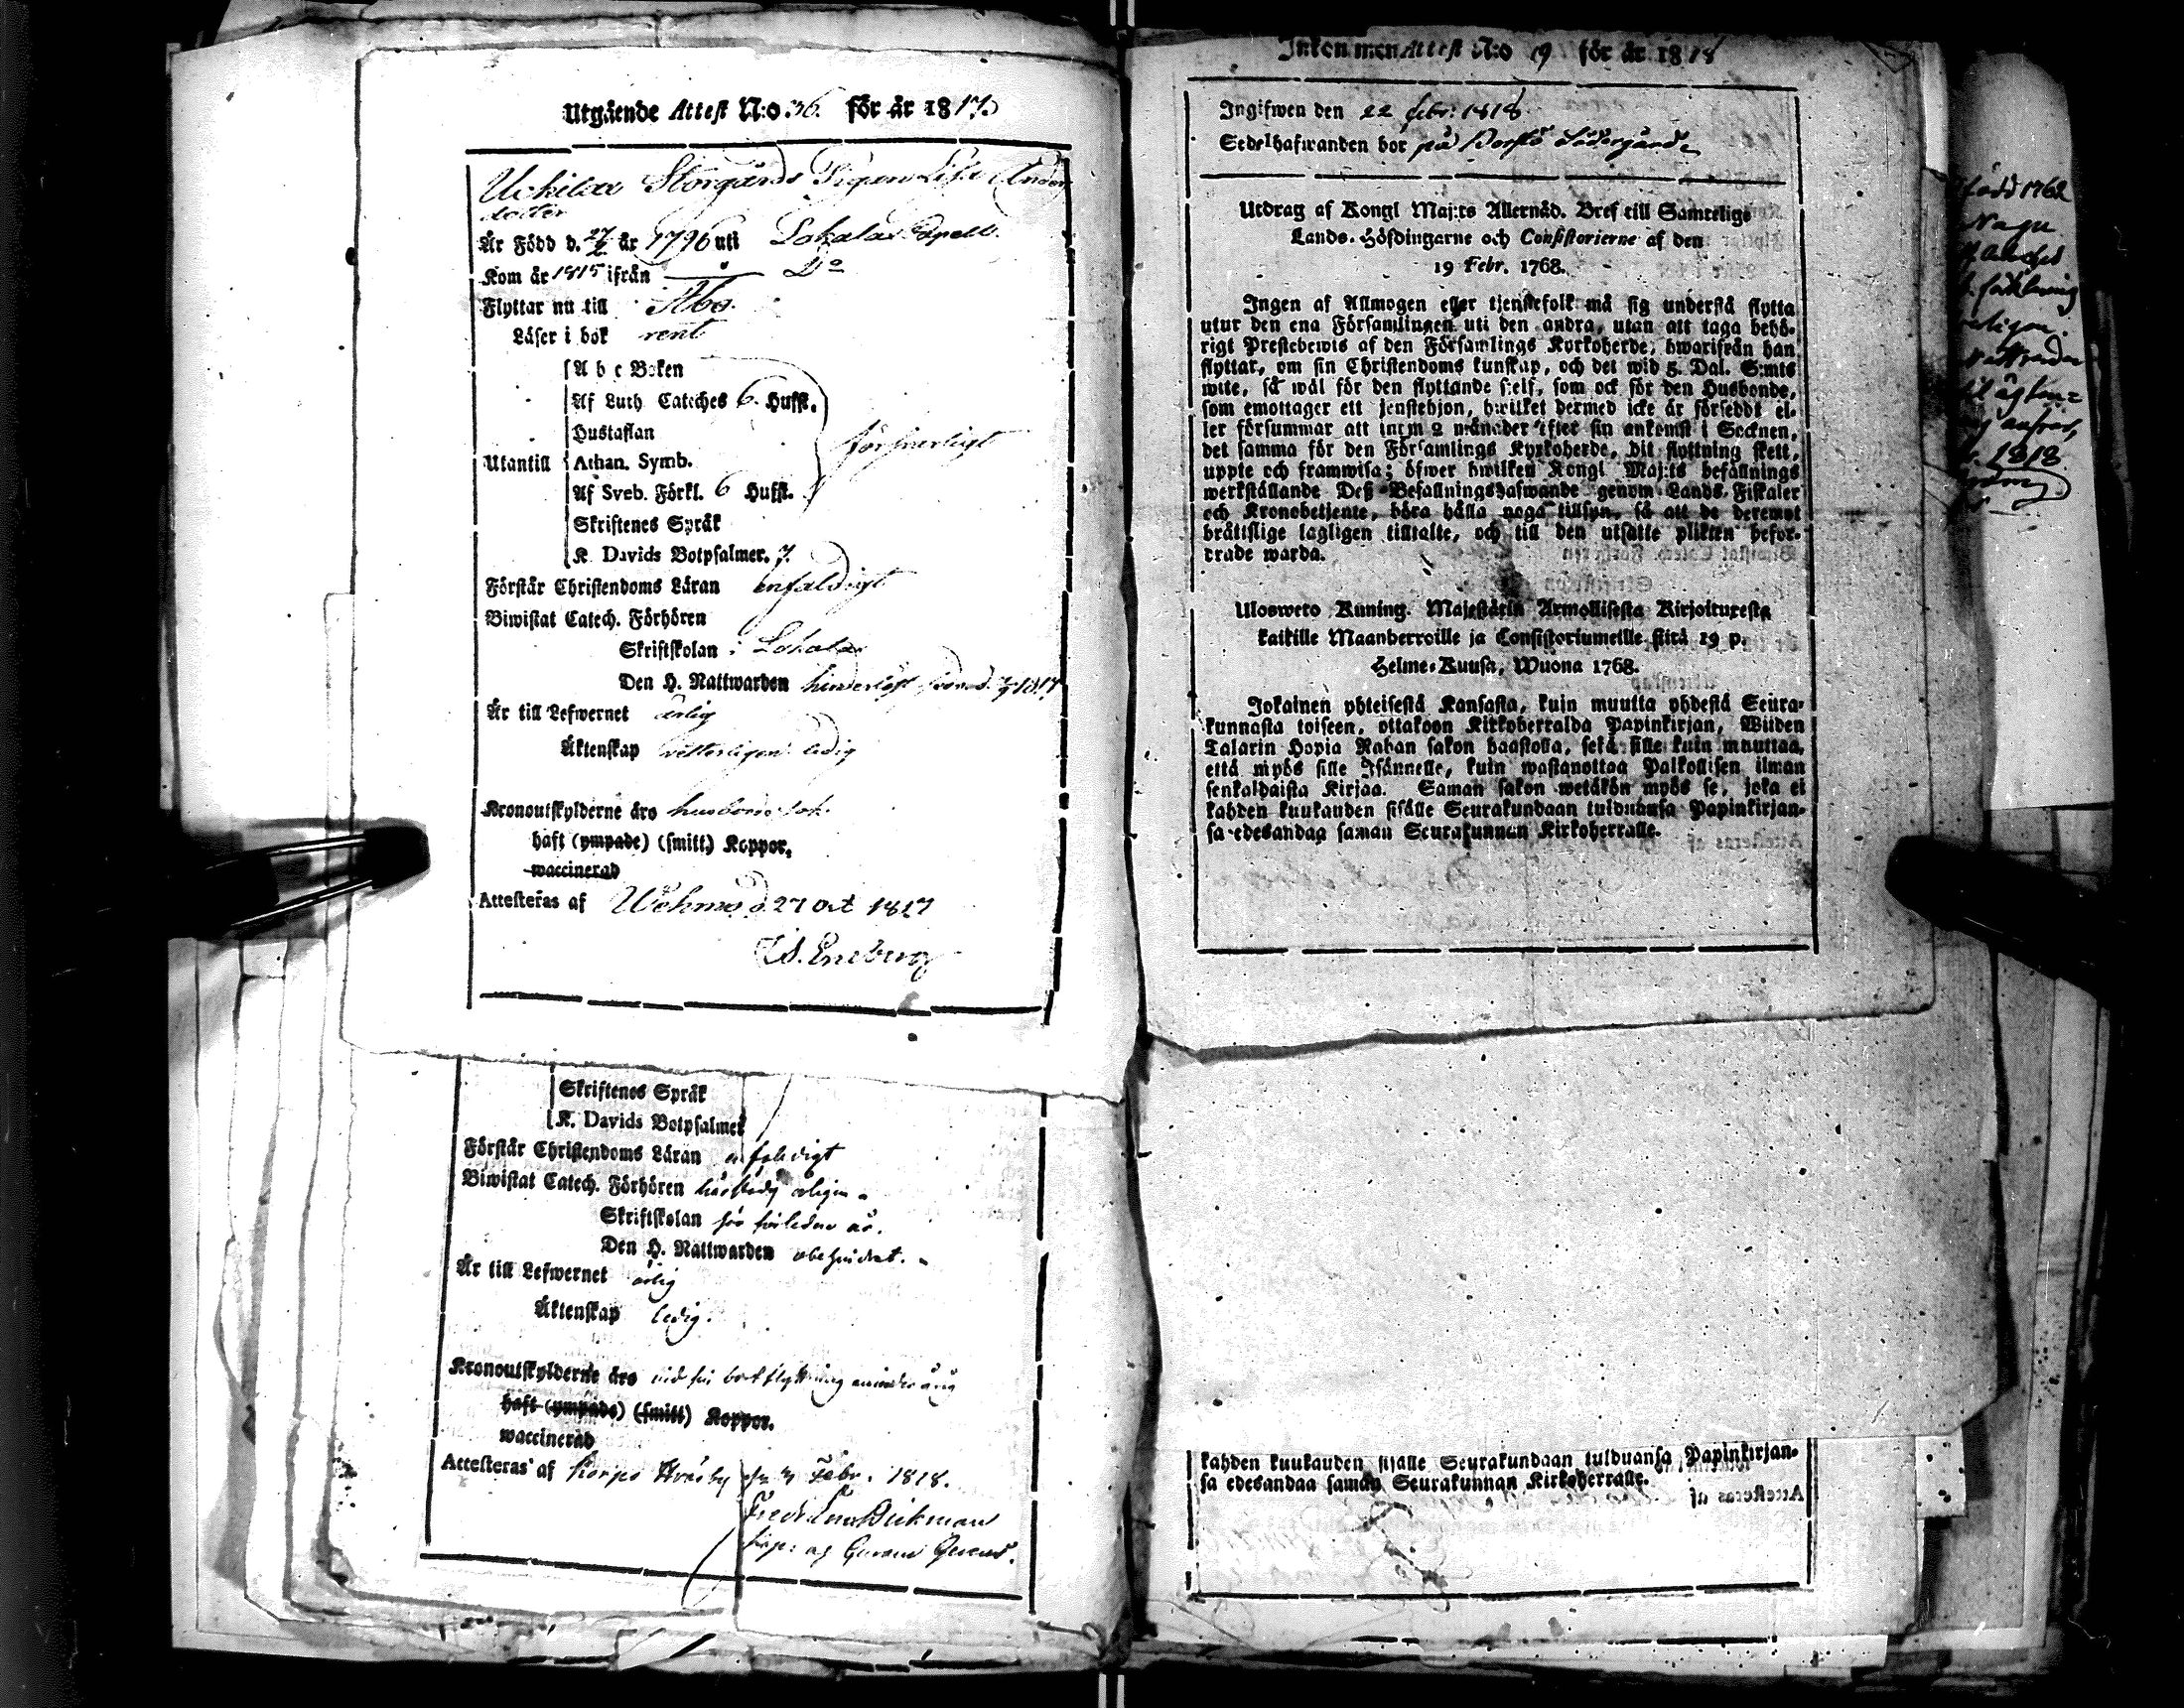 Utgående Attest N:o 36. för år 1817.
Uckilax Storgårds Pigan Lisa Anders
dotter
Är Född d. 27/2 år 1796 uti Lokalax Capell.
Kom år 1815 ifrån D:o
Flyttar nu till Åbo.
Läser i bok rent
A b c Boken
Af Luth Cateches 6. Hufst.
Hustaflan
försvarligt
Utantill Athan. Symb.
Af Sveb. Förkl. 6 Hufst.
Skriftenes Språk
K. Davids Botpsalmer. 7.
Förstår Christendoms Läran enfaldigt
Biwistat Catech. Förhören
Skriftskolan i Lokalax
Den H. Nattwarden hinderlöst 1817
Är till Lefwernet ärlig
Äktenskap witterligen ledig
Kronoutskylderne äro
haft (ympade) (smitt) Koppor,
waccinerad
Attesteras af Wehmo d. 27 Oct 1817
Eneberg
Skriftenes Språk
K. Davids Botpsalmer
Förstår Christendoms Läran enfaldigt
Biwistat Catech. Förhören
Skriftskolan för förledne år.
Den H. Nattwarden obehindrat.
Är till Lefwernet ärlig
Äktenskap ledig.
Kronoutskylderne äro vid sin bortflyttning minderårig
haft (ympade) (smitt) Koppor.
waccinerad
Attesteras af Korpo Febr. 1818.
Inkommen Attest N:o 19 för år 1818
Ingifwen den 22 febr: 1818
Sedelhafwanden bor på Södergårde
Utdrag af Kongl Maj:ts Allernåd. Bref till Samtelige
Lands-Höfdingarne och Consistorierne af den
19 Febr. 1768.
Ingen af Allmogen eller tjenstefolk må sig understå flytta
utur den ena Församlingen uti den andra, utan att taga behö-
rigt Prestebewis af den Församlings Kyrkoherde, hwarifrån han
flyttar, om sin Christendoms kunskap, och det wid 5. Dal. S:mts
wite, så wäl för den flyttande sjelf, som ock för den Husbonde,
som emottager ett tjenstehjon, hwilket dermed icke är förseddt el-
ler försummar att inom 2 månader efter sin ankomst i Socknen,
det samma för den Församlings Kyrkoherde, dit flyttning skett,
uppte och framwisa; öfwer hwilken Kongl Maj:ts befallnings
werkställande Deß Befallningshafwande genom Lands Fiskaler
och Kronobetjente, böra hålla noga tillsyn, så att de deremot
brätislige lagligen tilltalte, och till den utsatte plikten befor-
drade warda.
Ulosweto Kuning. Majestätin Armollisesta Kirjoituxesta
kaikille Maanherroille ja Consistoriumeille siitä 19 p.
Helme-Kuusa, Wuona 1768.
Jokainen yhteisestä Kansasta, kuin muutta yhdestä Seura-
kunnasta toiseen, ottakoon Kirkoherralda Papinkirjan, Wiiden
Talarin Hopia Rahan sakon haastolla, sekä sille kuin muuttaa,
että myös sille Isännelle, kuin wastanottaa Palkollisen ilman
senkaldaista Kirjaa. Saman sakon wetäkön myös se, joka ei
kahden kuukauden sisälle Seurakundaan tulduansa Papinkirjan-
sa edesandaa saman Seurakunnan Kirkoherralle.
kahden kuukauden sisälle Seurakundaan tulduansa Papinkirjan-
sa edesandaa saman Seurakunnan Kirkoherralle.
född 1762
Nagu
1818